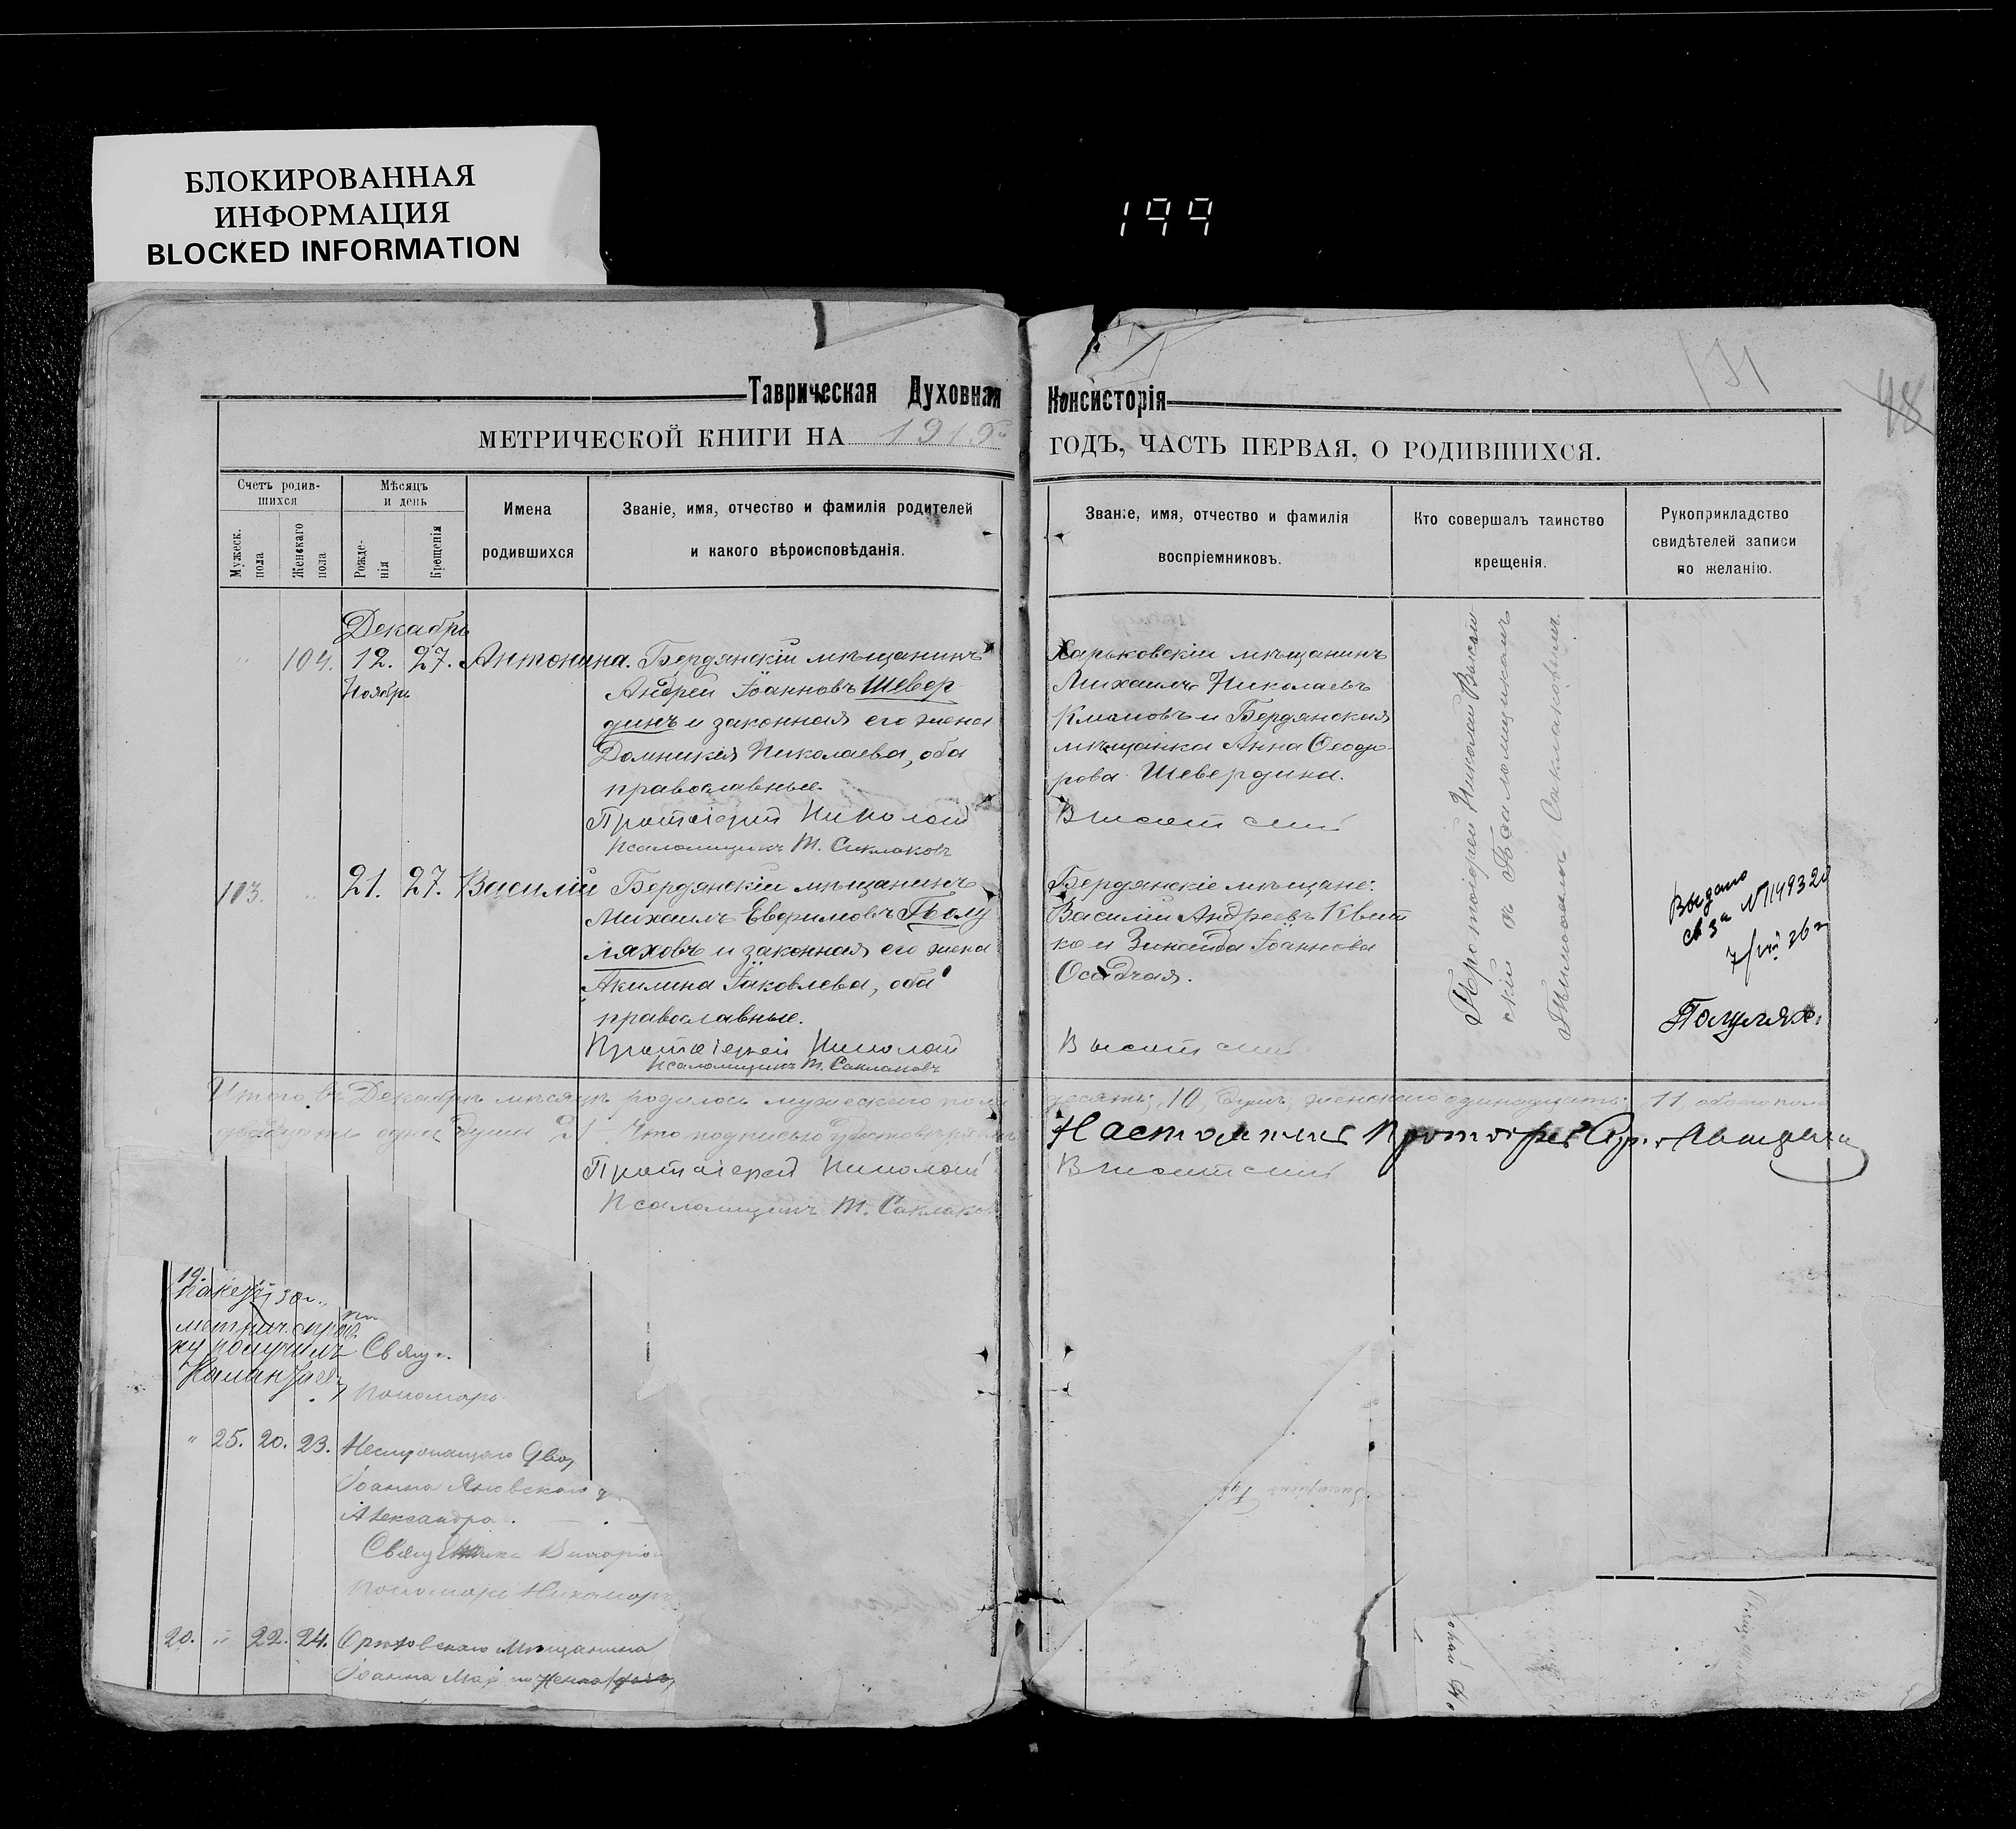 БЛОКИРОВАННАЯ
ИНФОРМАЦИЯ
BLOCKED INFORMATION
199
131
48
Таврическая Духовная Консисторія
МЕТРИЧЕСКОЙ КНИГИ НА 1919 ГОДЪ, ЧАСТЬ ПЕРВАЯ, О РОДИВШИХСЯ.
Счетъ родив-
шихся
Мужеск.
пола
Женскаго
пола
Мѣсяцъ
и день
Рожде-
нія
Крещенія
Имена
родившихся
Званіе, имя, отчество и фамилія родителей
и какого вѣроисповѣданія.
Званіе, имя, отчество и фамилія
воспріемниковъ.
Кто совершалъ таинство
крещенія.
Рукоприкладство
свидѣтелей записи
по желанію.
Декабрь
" 104. 12. 27. Антонина. Бердянскій мѣщанинъ
Ноябрь
Андрей Іоанновъ Шевер-
динъ и законная его жена
Домникія Николаева, оба
православные.
Протоіерей Николай
Псаломщикъ Т. Саклаковъ
Харьковскій мѣщанинъ
Михаилъ Николаевъ
и Бердянская
мѣщанка Анна Ѳеодо-
рова Шевердина.
Высотскій
Протоіерей Николай Высот-
скій съ Псаломщикомъ
Тимоѳеемъ Саклаковымъ.
103. " 21. 27. Василій Бердянскій мѣщанинъ
Михаилъ Евфимовъ Полу-
ляховъ и законная его жена
Акилина Іаковлева, оба
православные.
Протоіерей Николай
Псаломщикъ Т. Саклаковъ
Бердянскіе мѣщане:
Василій Андреевъ Квит-
ко и Зинаида Іоаннова
Осадчая.
Высотскій
Выдано
св за №
Полулях
Итого въ Декабрѣ мѣсяцѣ родилось мужескаго пола десять, 10, душъ, женскаго одинадцать, 11 обоего пола
двадцать одна душа 21. Что подписью удостовѣряемъ
Протоіерей Николай
Высотскій
Псаломщикъ Т. Саклаковъ
Настоятель Протоіерей
получилъ
Свящ.
Пономарь
" 25. 20. 23.
Іоанна Яновскаго
Александра.
Пономарь Никаноръ
20. " 22. 24. Орѣховскаго Мѣщанина
Іоанна